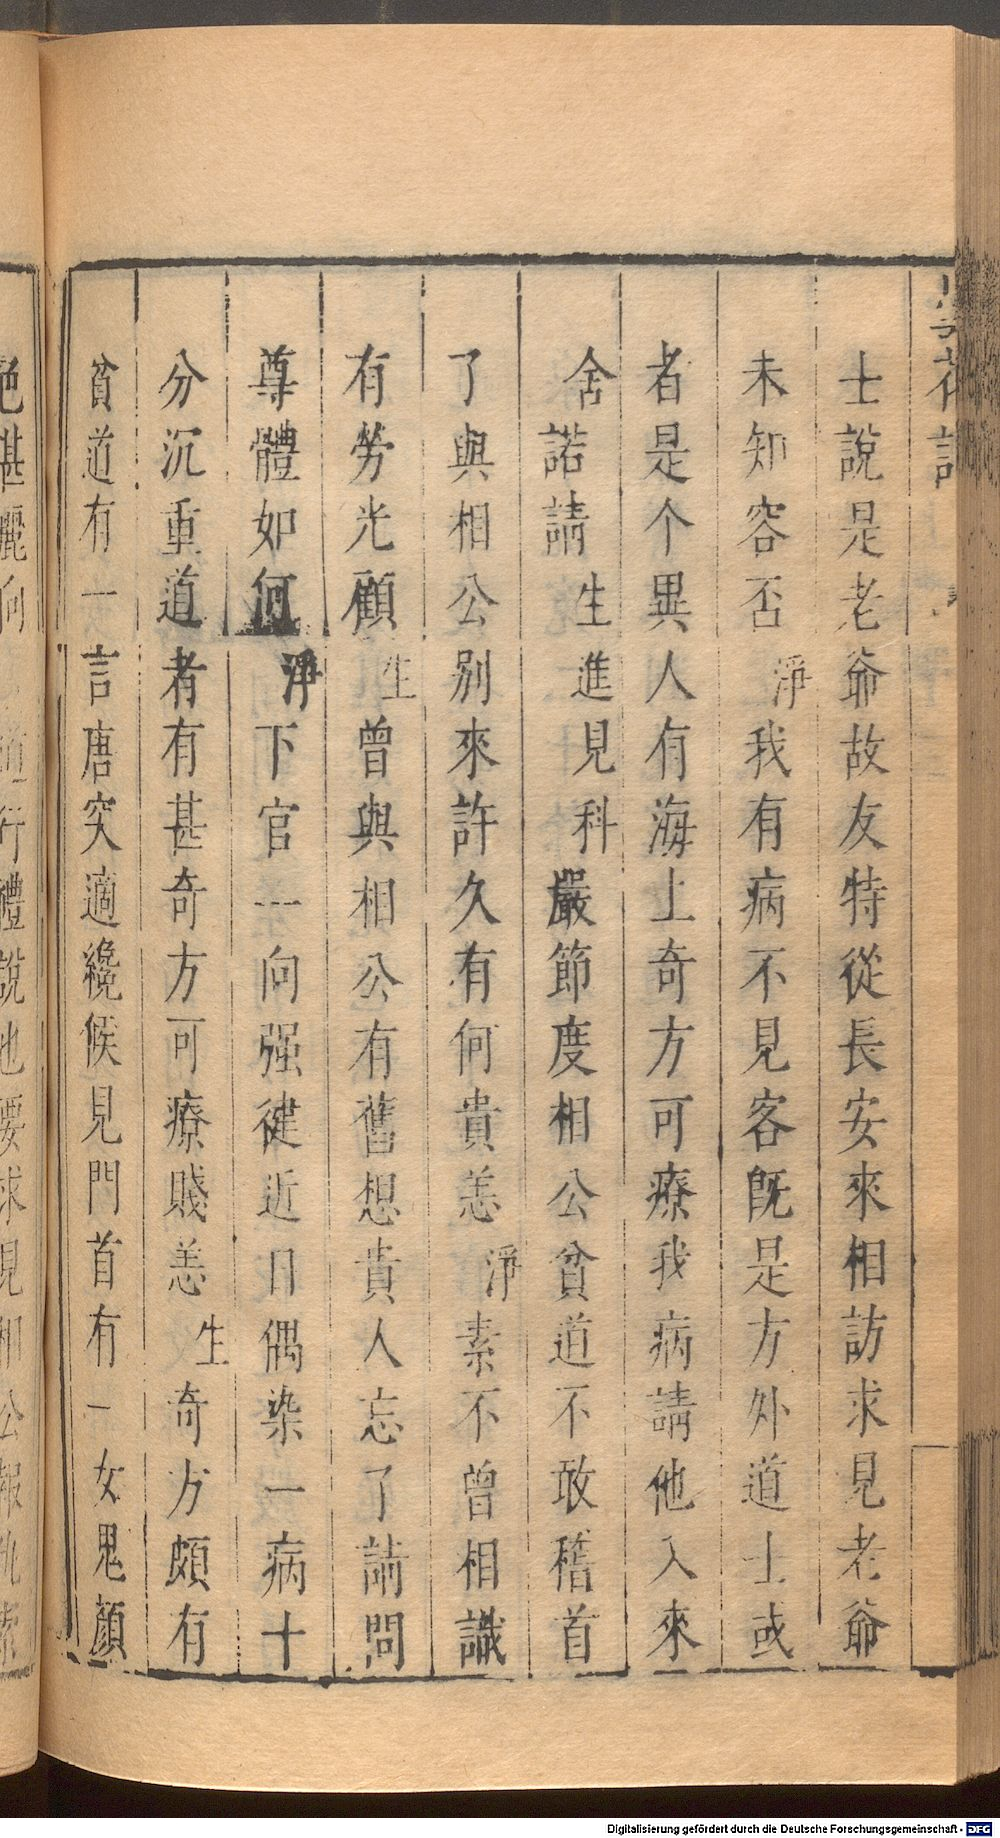 士說是老爺故友特從長安來相訪求見老爺
未知容否淨我有病不見客既是方外道士或
者是个異人有海上奇方可療我病請他入來
舍諾請生進見科嚴節度相公貧道不敢稽首
了與相公別來許久有何貴恙淨素不曾相識
有勞光顧生曾與相公有舊想貴人忘了請問
尊體如何淨下官一向强健近日偶染一病十
分沉重道者有甚奇方可療賤恙生奇方頗有
貧道有一言唐突適纔候見門首有一女鬼顏
Digitalisierung gefördert durch die Deutsche Forschungsgemeinschaft - DFG